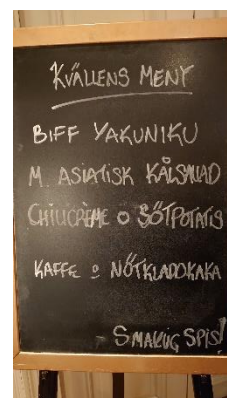 KVÄLLENS MENY
BIFF YAKUNIKU
M. ASIATISK KÅLSALLAD
CHILICRÈME O SÖTPOTATIS
KAFFE O NÖTKLADDKAKA
SMAKLIG SPIS!